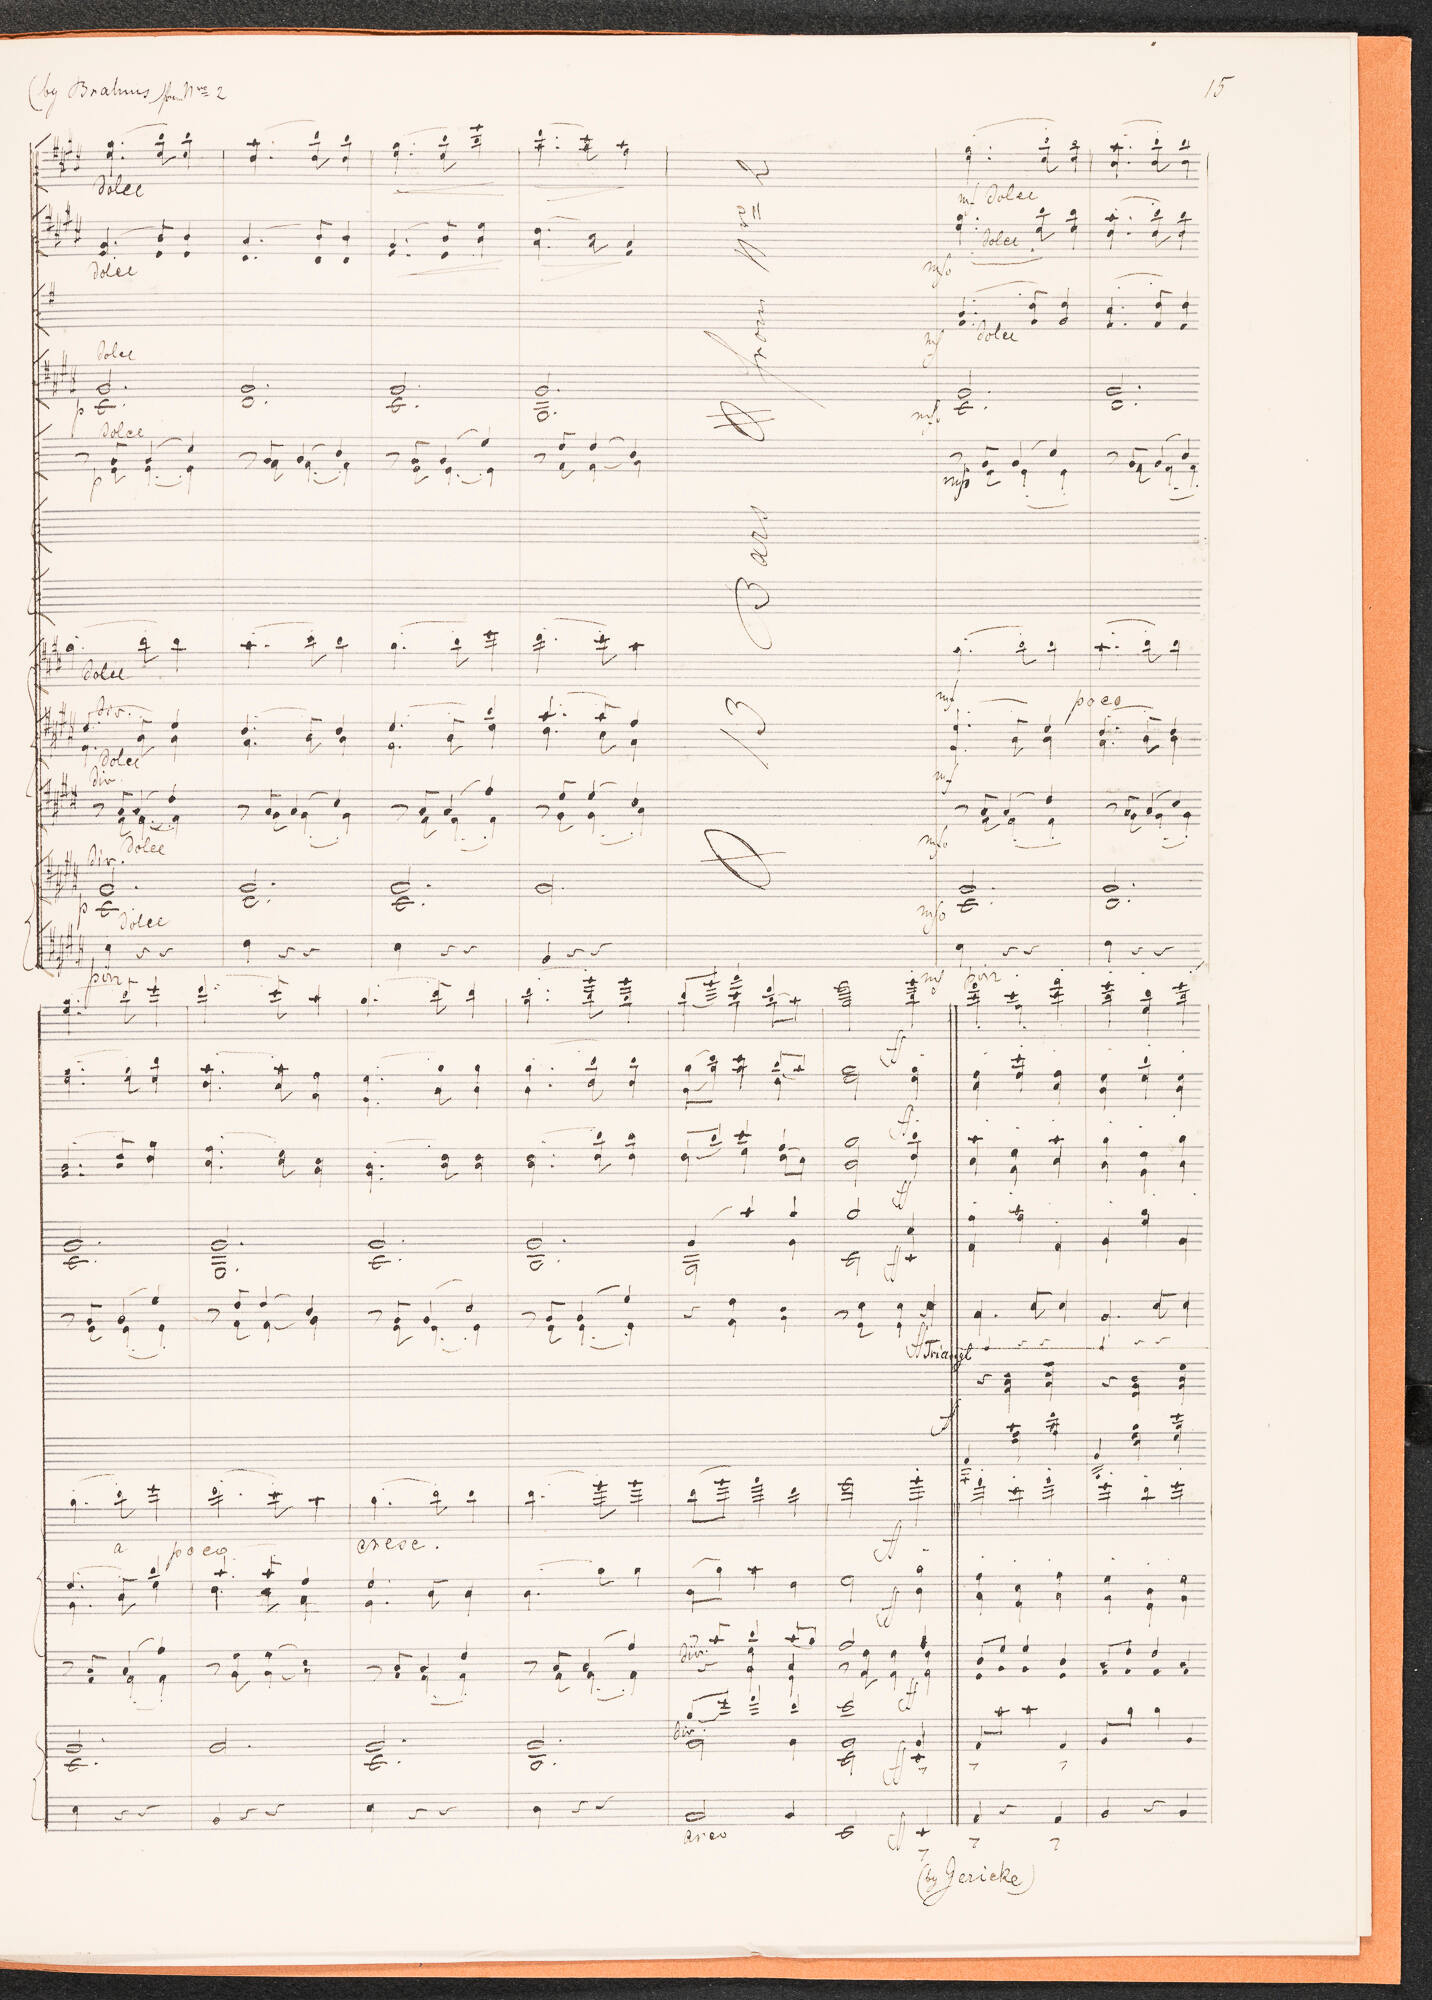 (by Brahms, from Nro 2
15
dolce
mf dolce
dolce
dolce
mfo
dolce
mf
dolce
p
mfo
dolce
p
mfo
13 Bars from No. 2
dolce
mf
poco
div.
dolce
mf
div.
dolce
mfo
div.
p
dolce
mfo
piz.
mfo
piz.
ff
ff
ff
ff
ff Triangl
f
a poco cresc.
ff
ff
div.
ff
div.
ff
arco
ff
(by Gericke)